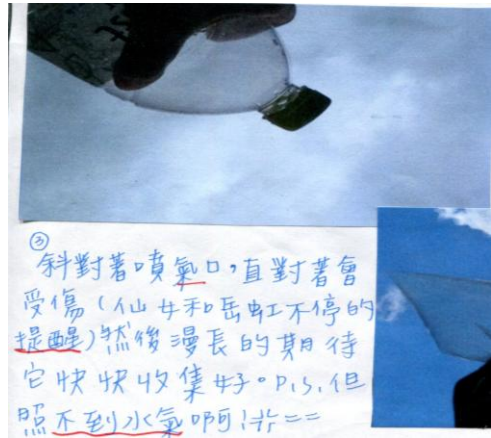 ③
斜對著噴氣口,直對著會
受傷(仙女和岳虹不停的
提醒)然後漫長的期待
它快快收集好。P.S.但
照不到水氣啊!==